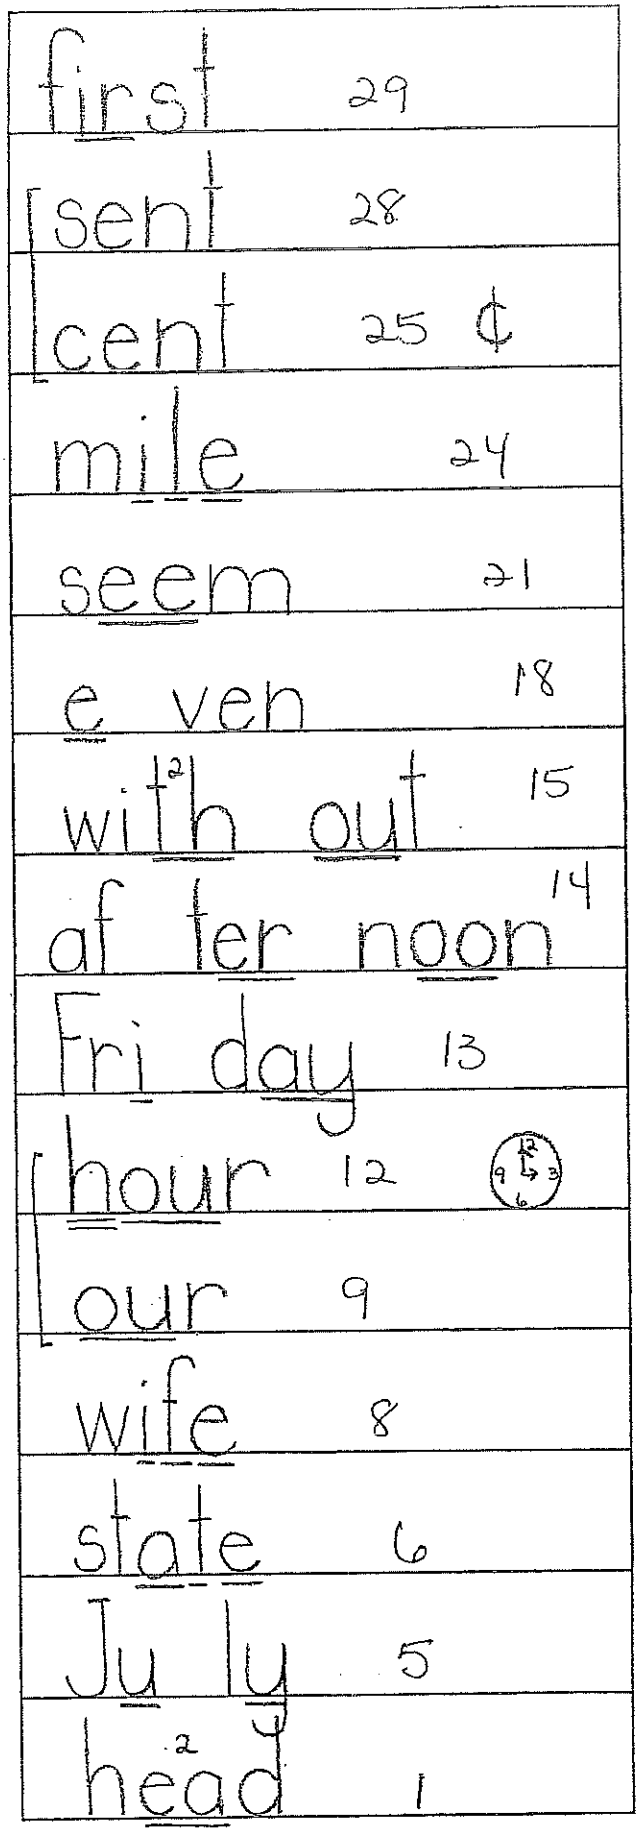 first 29
sent 28
cent 25 ¢
mile 24
seem 21
e ven 18
with² out 15
af ter noon 14
Fri day 13
hour 12 12 3 6 9
our 9
wife 8
state 6
Ju ly 5
hea²d 1